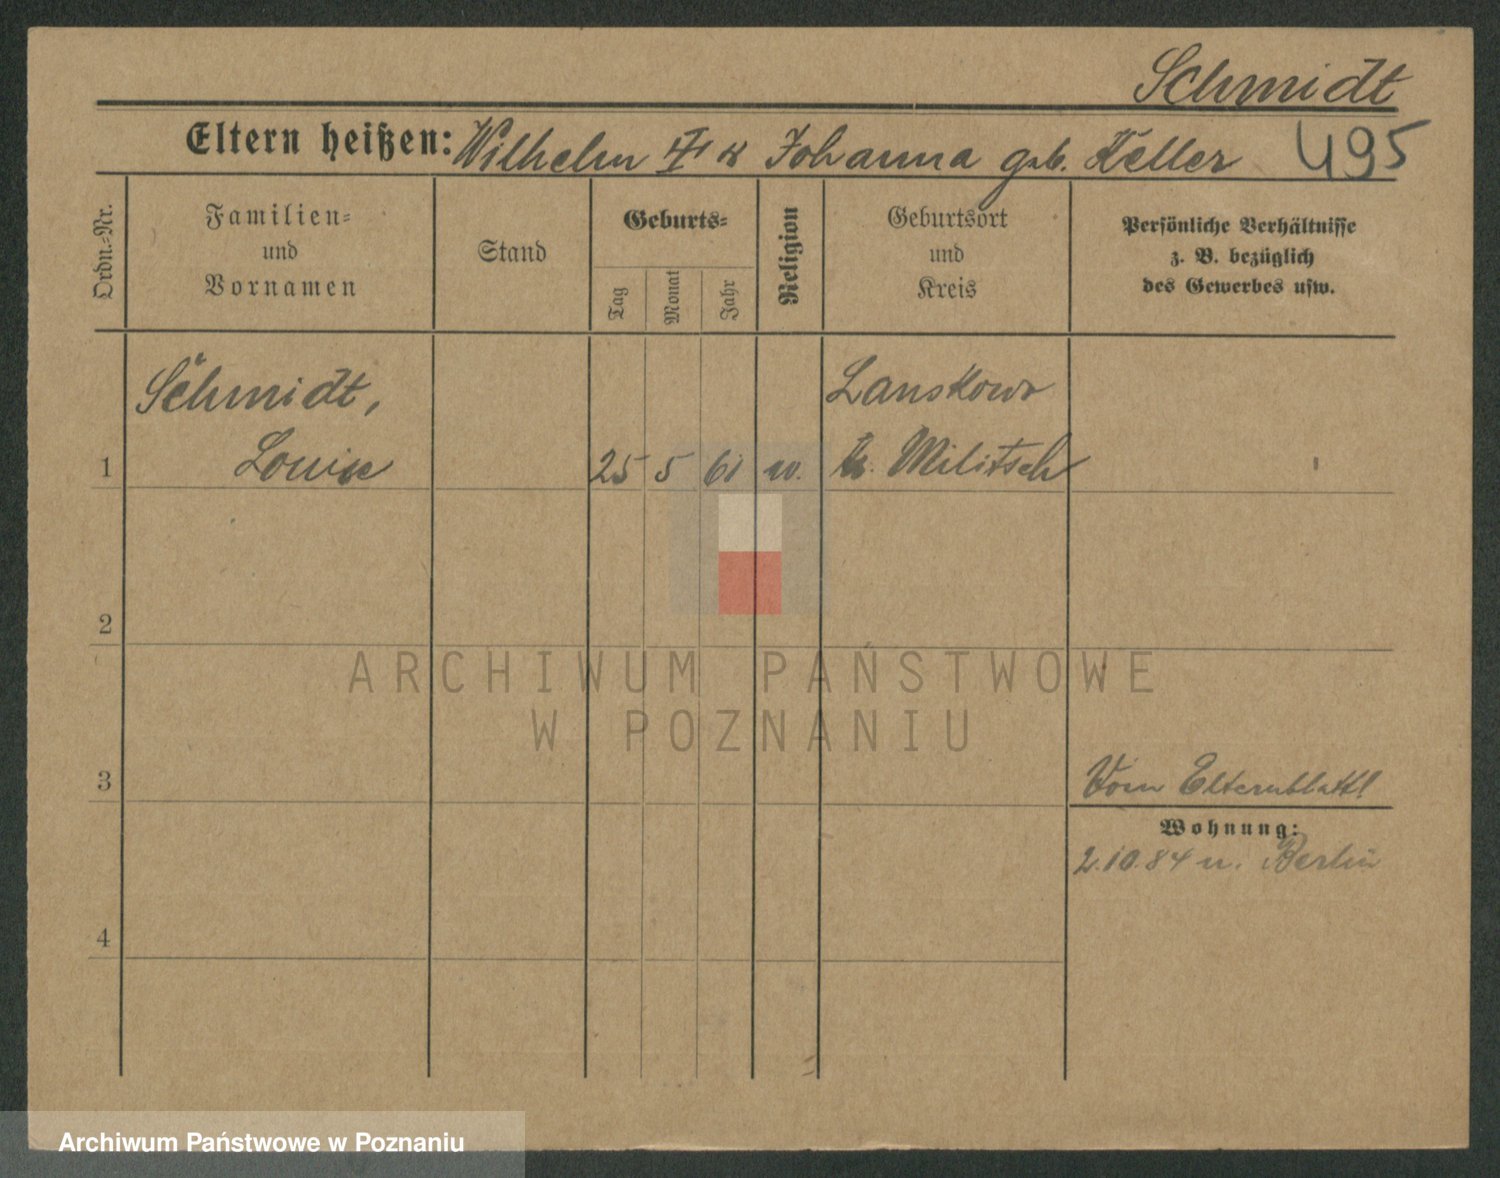 Schmidt
Eltern heißen: Wilhelm Johanna geb. Keller 495
Ordn.-Nr. Familien- und Vornamen Stand Geburts- Tag Monat Jahr Religion Geburtsort und Kreis Persönliche Verhältnisse z. B. bezüglich des Gewerbes usw.
Schmidt, Lanskowo
1 Louise 25 5 61 Kr. Militsch
2
ARCHIWUM PAŃSTWOWE
W POZNANIU
3 Vom Elternblatt!
Wohnung:
2.10.84 n. Berlin
4
Archiwum Państwowe w Poznaniu